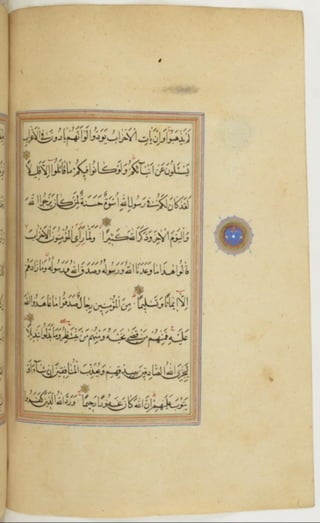 لم يذهبوا وان يات الاحزاب يودوا لو انهم بادون في الاعراب
يسئلون عن انبائكم ولو كانوا فيكم ما قاتلوا الا قليلا
لقد كان لكم في رسول الله اسوة حسنة لمن كان يرجوا الله
واليوم الاخر وذكر الله كثيرا ولما رأى المؤمنون الاحزاب
قالوا هذا ما وعدنا الله ورسوله وصدق الله ورسوله وما زادهم
الا ايمانا وتسليما من المؤمنين رجال صدقوا ما عاهدوا الله
عليه فمنهم من قضى نحبه ومنهم من ينتظر وما بدلوا تبديلا
ليجزي الله الصادقين بصدقهم ويعذب المنافقين ان شاء او
يتوب عليهم ان الله كان غفورا رحيما ورد الله الذين كفروا